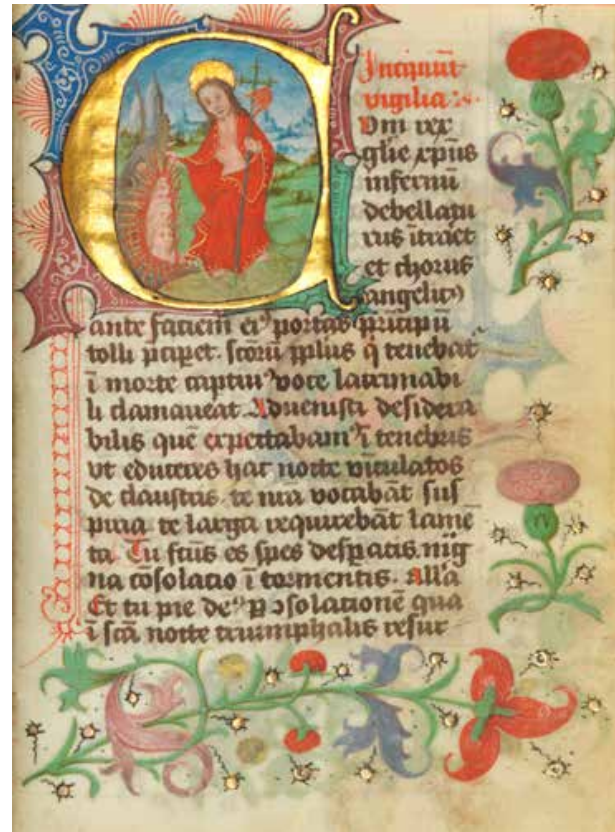 Incipiūt
vigilia:
C Vm rex
glīe xp̄us
infernū
debellatu
rus ītraēt
et chorus
angelicꝰ
ante faciem eiꝰ portas prīcipū
tolli p̄cipet. scōrū pplūs q̄ tenebat̄
ī morte captiuꝰ voce lacrimabi
li clamaueat. Aduenisti desidera
bilis quē expectabamꝰ ī tenebris
vt educeres hac nocte vīculatos
de claustris. te nr̄a vocabāt sus
piria te larga requirebāt lamē
ta. Tu fc̄us es spes despatis. mag
na cōsolacio ī tormentis. All̄a
Et tu pie deꝰ p ↄsolationē qua
ī scā nocte triumphalis resur